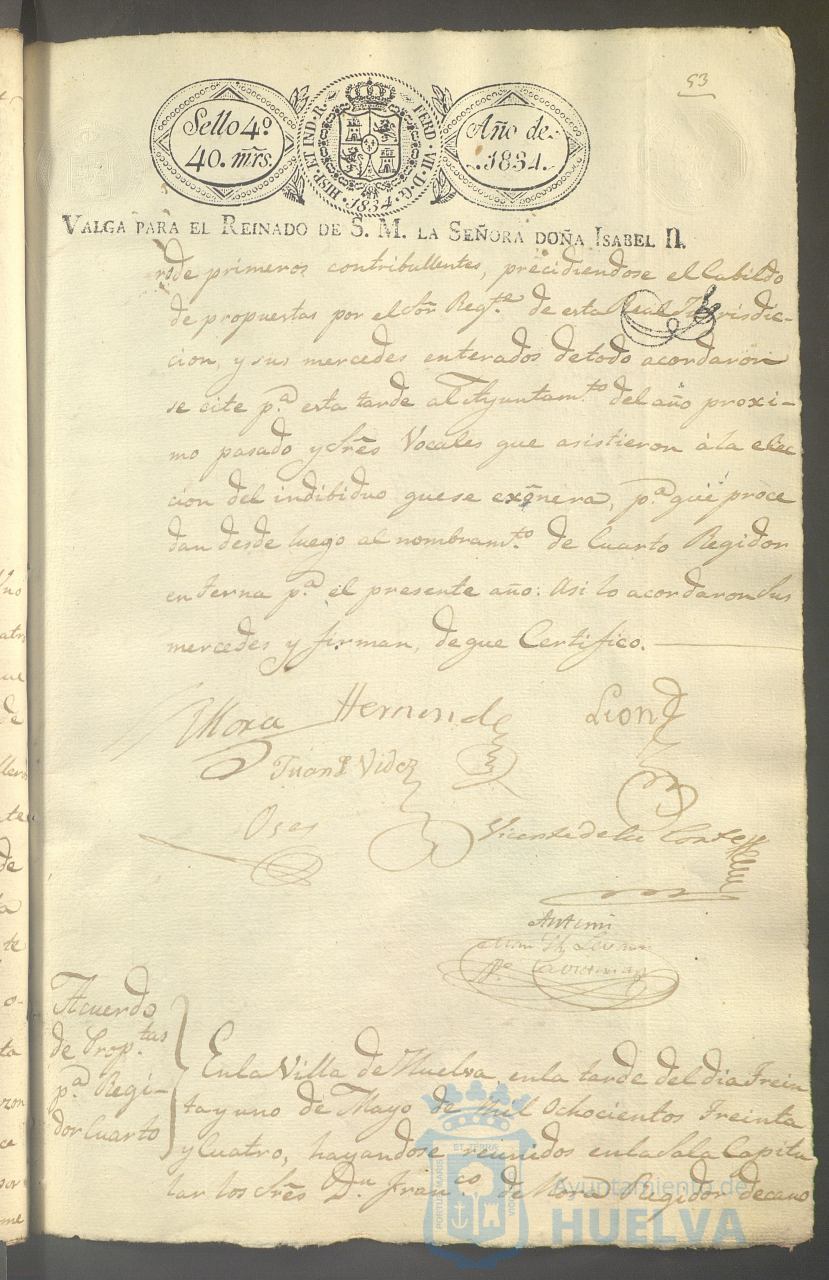 53
Sello 4º
40. mrs.
HISP. ET IND. R. FERD. VII. D. G. 1834.
Año de
1834.
VALGA PARA EL REINADO DE S. M. LA SEÑORA DOÑA ISABEL II.
rs. de primeros contribullentes, precidiendose el Cabildo
de propuestas por el Sor. Regte. de esta Real Jurisdic-
cion, y sus mercedes enterados de todo acordaron
se cite pa. esta tarde al Ayuntamto. del año proxi-
mo pasado y Sres. Vocales que asistieron á la elec
cion del indibiduo que se exônera, pa. que proce
dan desde luego al nombramto. de Cuarto Regidor
en terna pa. el presente año: Asi lo acordaron sus
mercedes y firman, de que Certifico.
Mora Hernande Leon
Juan Videz
Oses Vicente de la Corte
Acuerdo
de Proptas.
pa. Regi-
dor Cuarto
En la Villa de Huelva en la tarde del dia Trein
ta y uno de Mayo de mil Ochocientos Treinta
y Cuatro, hayandose reunidos en la Sala Capitu
lar los Sres. Dn. Franco. de Mora Regidor decano
PORTUS MARIS ET TERRAE
Ayuntamiento de
HUELVA